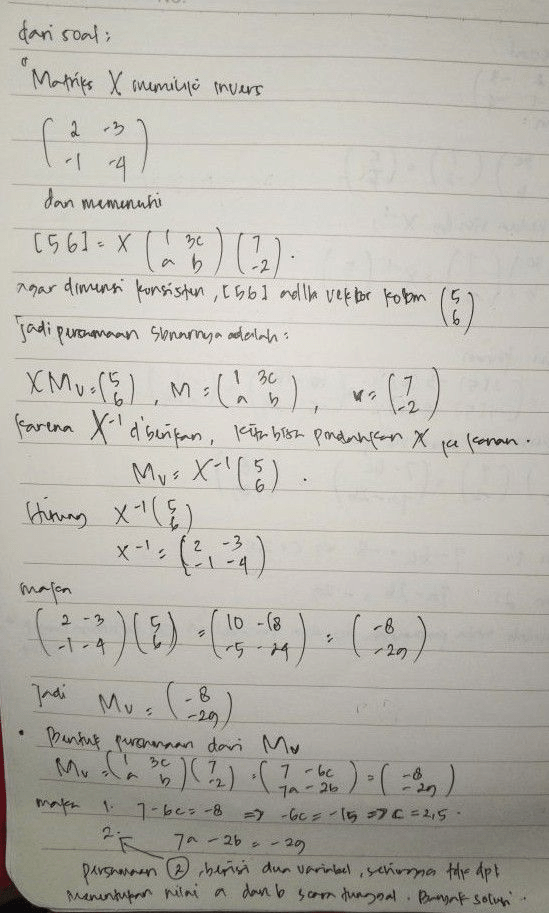 dari soal:
"Matriks X memiliki invers
( 2 -3
-1 -4 )
dan memenuhi
[5 6] = X ( 1 3c
a b ) ( 7
-2 ).
agar dimensi konsisten, [5 6] adlh vektor kolom ( 5
6 )
Jadi persamaan sbnarnya adalah:
X Mv = ( 5
6 ) , M = ( 1 3c
a b ) , v = ( 7
-2 )
karena X⁻¹ diberikan, kita bisa pindahkan X ke kanan.
Mv = X⁻¹ ( 5
6 ) .
Hitung X⁻¹ ( 5
6 )
X⁻¹ = ( 2 -3
-1 -4 )
maka
( 2 -3
-1 -4 ) ( 5
6 ) = ( 10 -18
-5 -24 ) = ( -8
-29 )
Jadi Mv = ( -8
-29 )
• Bentuk persamaan dari Mv
Mv = ( 1 3c
a b ) ( 7
-2 ) = ( 7 -6c
7a -2b ) = ( -8
-29 )
maka 1. 7-6c = -8 => -6c = -15 => c = 2,5.
2. 7a -2b = -29
persamaan (2), berisi dua variabel, sehingga tdk dpt
menentukan nilai a dan b scara tunggal. Banyak solusi.